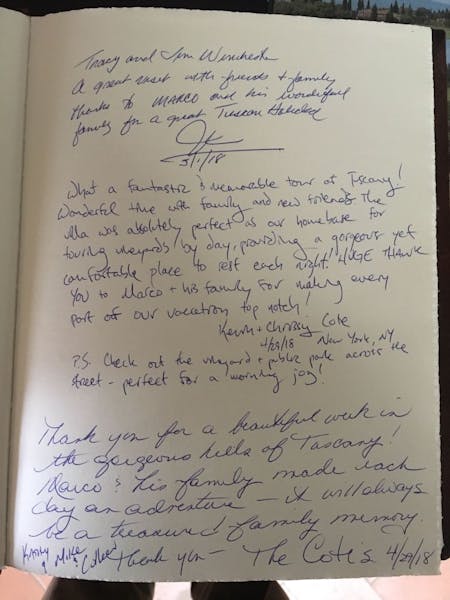 Tracy and Jim Winchester
A great visit with friends + family
thanks to MARCO and his wonderful
family for a great Tuscan
3/1/18
What a fantastic & memorable tour of Tuscany!
Wonderful time with family and new friends. The
villa was absolutely perfect as our homebase for
touring vineyards by day, providing a gorgeous yet
comfortable place to rest each night! HUGE THANK
YOU to Marco + his family for making every
part of our vacation top notch!
Kevin + Chrissy Cote
4/29/18 New York, NY
P.S. Check out the vineyard + public park across the
street - perfect for a morning jog!
Thank you for a beautiful week in
the gorgeous hills of Tuscany!
Marco & his family made each
day an adventure — it will always
be a treasured family memory.
Thank you - The Cote's 4/29/18
Kathy & Mike &